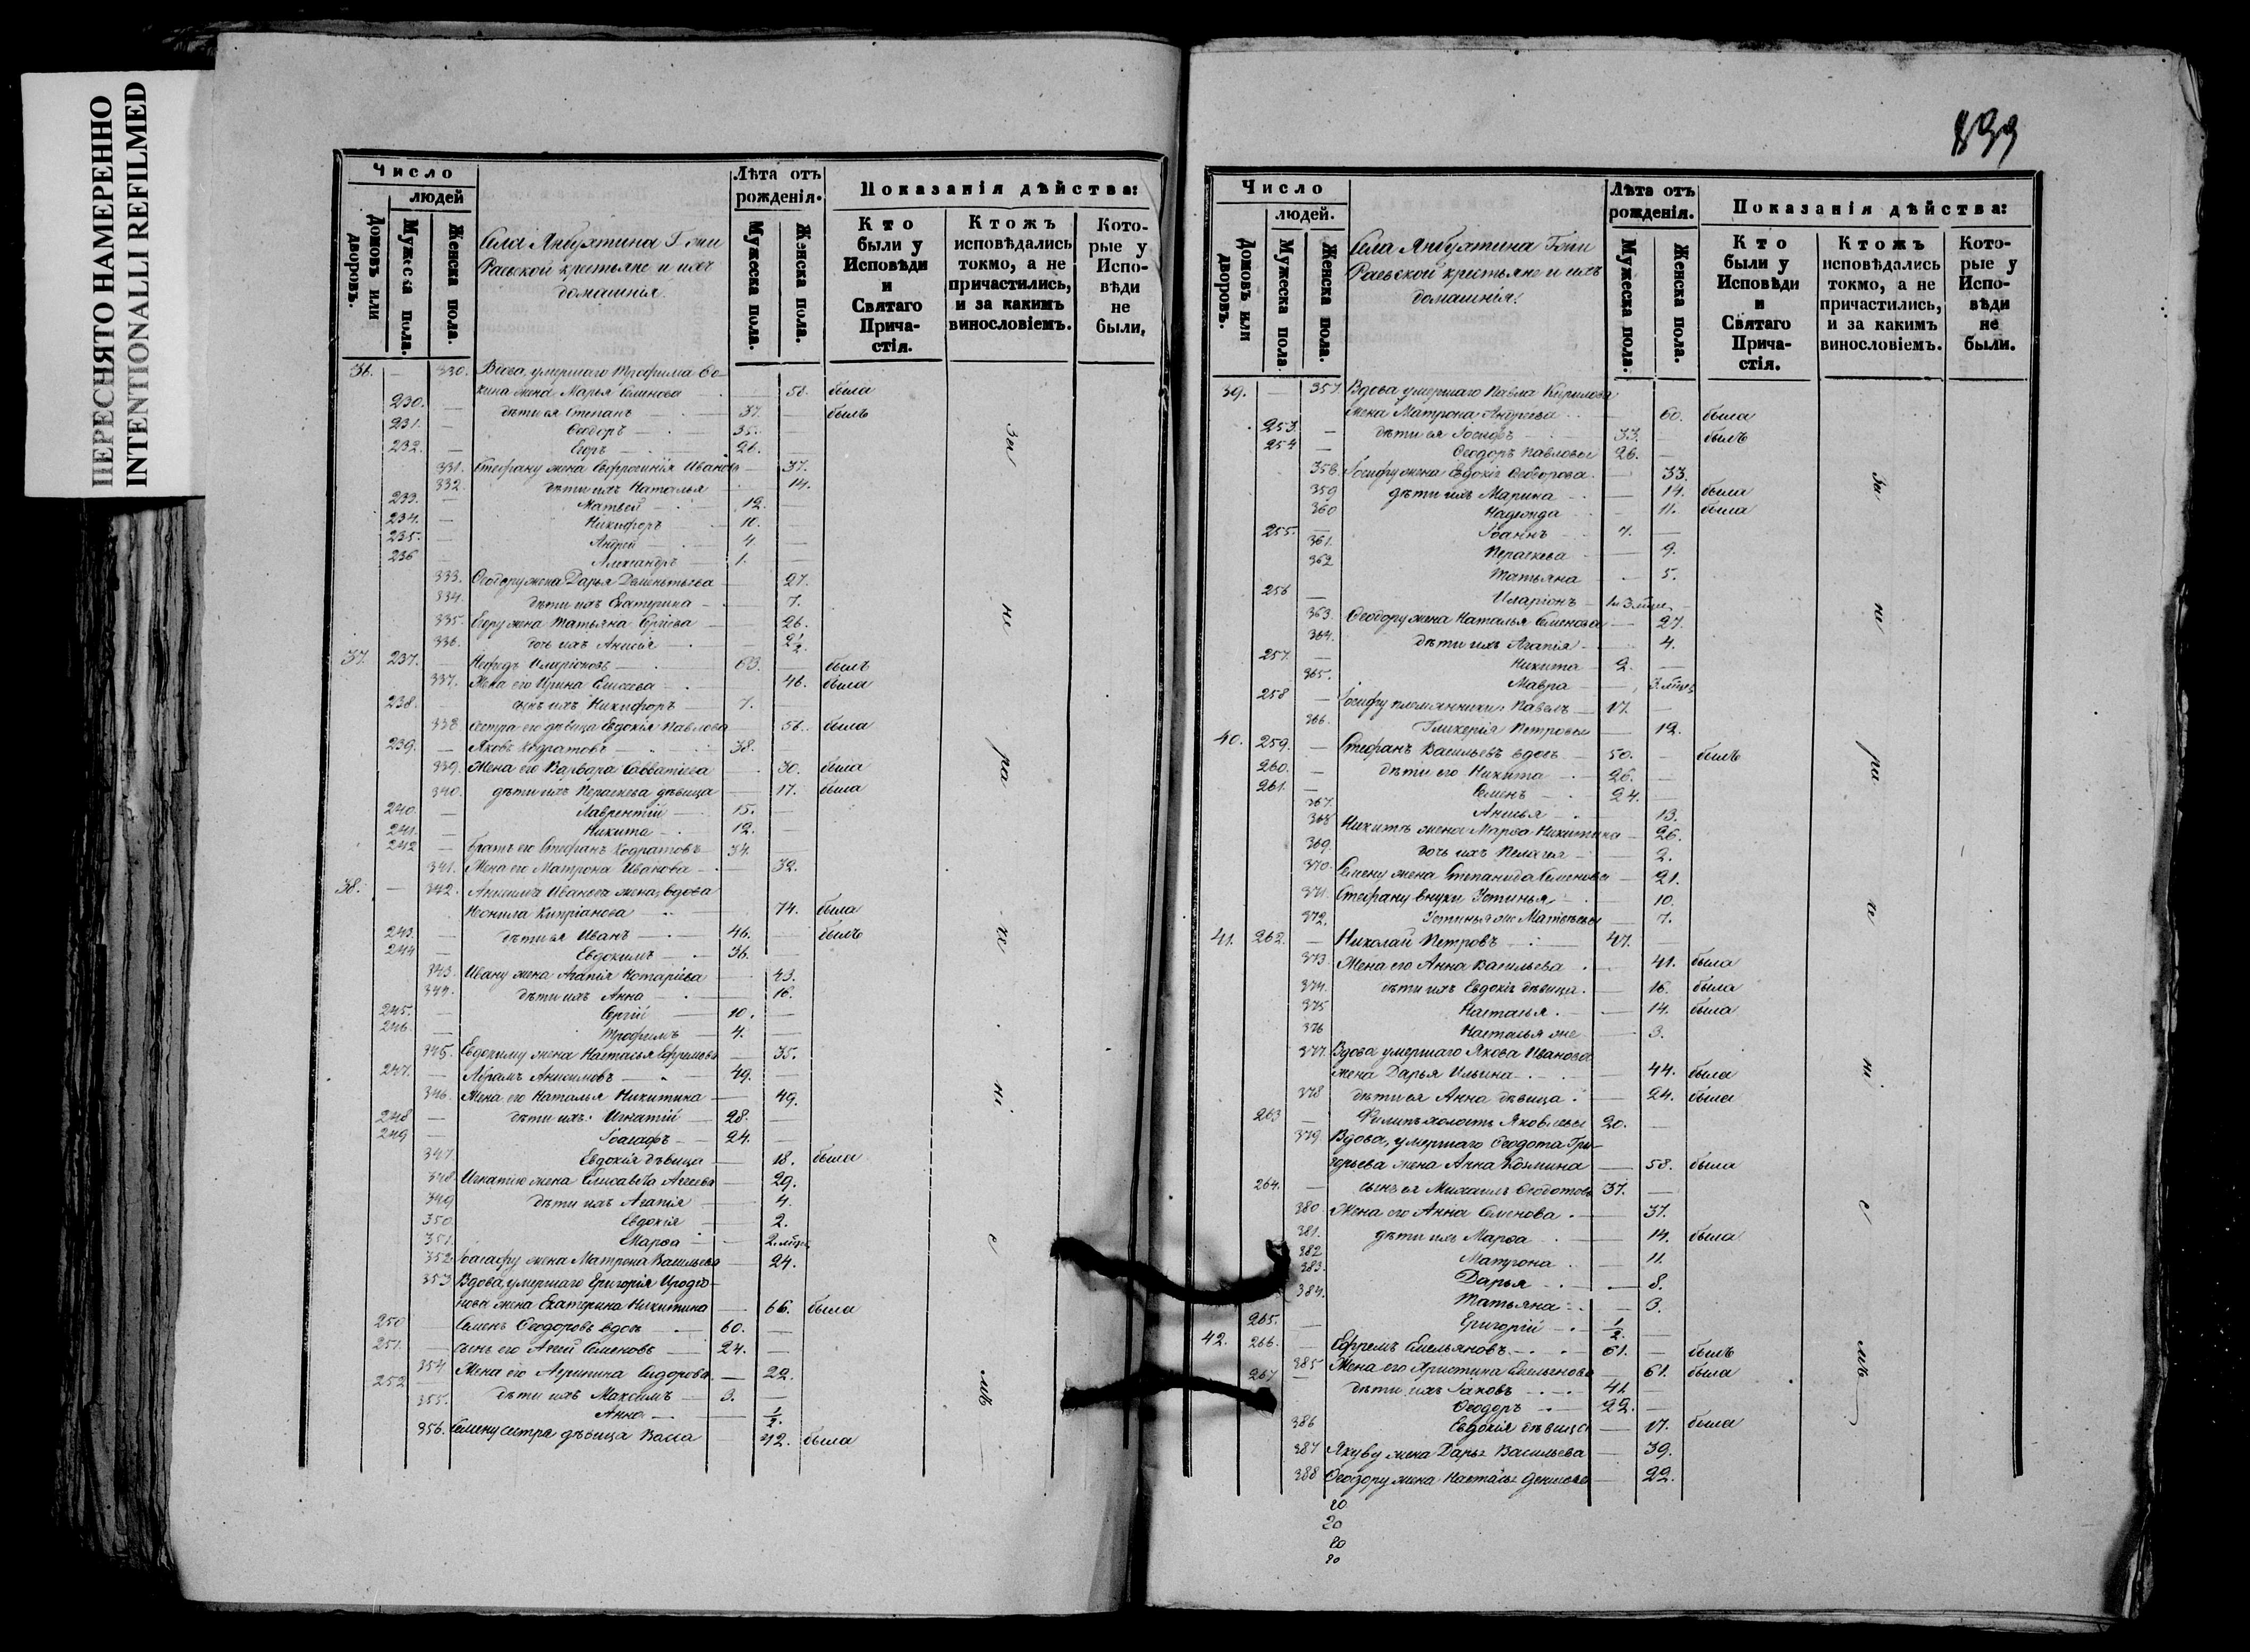 ПЕРЕСНЯТО НАМЕРЕННО
INTENTIONALLI REFILMED
Число
людей
Домовъ или дворовъ.
Мужеска пола.
Женска пола.
Села Янбухтина Г. жи
Раевской крестьяне и ихъ
домашнія.
Лѣта отъ рожденія.
Мужеска пола.
Женска пола.
Показанія дѣйства:
Кто были у Исповѣди и Святаго Причастія.
Ктожъ исповѣдались токмо, а не причастились, и за какимъ винословіемъ.
Которые у Исповѣди не были.
36. — 330. Вдова, умершаго Трофима
жена Марья Семенова — 58. была
230. — дѣти ея Степанъ — 37. — былъ
231. — Ѳеодоръ — 35. —
232. — Егоръ — 26. —
331. Стефану жена Евфросинія Иванова — 37.
332. дѣти ихъ Наталья — 14.
233. — Матвей — 12. —
234. — Никифоръ — 10. —
235. — Андрей — 4. —
236 — Александръ — 1. —
333. Ѳеодору жена Дарья Дементьева — 27.
334. дѣти ихъ Екатерина — 7.
335. Егору жена Татьяна Сергіева — 26.
336. дочь ихъ Анисія — 2 1/2.
37. 237. — Нефедъ Иларіоновъ — 63. — былъ
337. Жена его Ирина Елисеева — 46. была
238. — сынъ ихъ Никифоръ — 7. —
338. сестра его дѣвица Евдокія Павлова — 56. была
239. — Яковъ Кодратовъ — 38. —
339. Жена его Варвара Савватіева — 30. была
340. дѣти ихъ Параскева дѣвица — 17. была
240. — Лаврентій — 15. —
241. — Никита — 12. —
242 — братъ его Стефанъ Кодратовъ — 34. —
341. Жена его Матрона Иванова — 32.
38. — 342. Анисима Иванова жена, вдова
Неонила Кипріанова — 74. была
243. — дѣти ея Иванъ — 46. — былъ
244 — Евдокимъ — 36. —
343. Ивану жена Агапія Нотаріева — 43.
344. дѣти ихъ Анна — 16.
245. — Сергій — 10. —
246. — Трофимъ — 4. —
345. Евдокиму жена Настасья Ефремова — 35.
247. — Абрамъ Анисимовъ — 49. —
346. Жена его Наталья Никитина — 49.
248 — дѣти ихъ: Игнатій — 28. —
249 — Іоасафъ — 24. —
347. Евдокія дѣвица — 18. была
348. Игнатію жена Елисавета Агеева — 29.
349 дѣти ихъ Агапія — 4.
350. Евдокія — 2.
351. Марѳа — 2. мѣся
352. Іоасафу жена Матрона Васильева — 24.
353 Вдова, умершаго Григорія Иродіо-
нова жена Екатерина Никитина — 66. была
250 — Семенъ Ѳеодоровъ вдовъ — 60. —
251. — сынъ его Агей Семеновъ — 24. —
354 Жена его Агрипина Сидорова — 22.
252 дѣти ихъ Максимъ — 3. —
355. Анна — 1/2.
356. Семену сестра дѣвица Васса 42. была
За не ра де ні е мъ
839
Число
людей.
Домовъ или дворовъ.
Мужеска пола
Женска пола.
Села Янбухтина Г. жи
Раевской крестьяне и ихъ
домашнія.
Лѣта отъ рожденія.
Мужеска пола.
Женска пола.
Показанія дѣйства:
Кто были у Исповѣди и Святаго Причастія.
Ктожъ исповѣдались токмо, а не причастились, и за какимъ винословіемъ.
Которые у Исповѣди не были.
39. — 357. Вдова умершаго Павла Кирилова
жена Матрона Андреева — 60. была
253. — дѣти ея Іосифъ — 33. — былъ
254 — Ѳеодоръ Павловы 26. —
358. Іосифу жена Евдокія Ѳеодорова — 33.
359 дѣти ихъ Марина — 14. была
360 Надежда — 11. была
255. — Іоаннъ — 7. —
361. Параскева — 9.
362 Татьяна — 5.
256 — Иларіонъ — 3 мѣся —
363. Ѳеодору жена Наталья Семенова — 27.
364. дѣти ихъ Агапія — 4.
257. — Никита — 2. —
365. Мавра — 3. мѣся
258 — Іосифу племянники: Павелъ — 17. —
366. Гликерія Петровы — 12.
40. 259. — Стефанъ Васильевъ вдовъ — 50. — былъ
260. — дѣти его Никита — 26. —
261. — Семенъ — 24. —
367. Анисья — 13.
368 Никитѣ жена Марѳа Никитина — 26.
369. дочь ихъ Пелагея — 2.
370. Семену жена Степанида Семенова — 21.
371. Стефану внуки Устинья — 10.
372. Устинья же Матвѣевы — 7.
41. 262. — Николай Петровъ — 47. —
373. Жена его Анна Васильева — 41. была
374. дѣти ихъ Евдокія дѣвица — 16. была
375 Настасья — 14. была
376 Настасья же — 3.
377. Вдова умершаго Якова Иванова
жена Дарья Ильина — 44. была
378 дѣти ея Анна дѣвица — 24. была
263 — Филипъ холостъ Яковлевы 20. —
379. Вдова, умершаго Ѳеодота Гри-
горьева жена Анна Козмина — 58. была
264. — сынъ ея Михаилъ Ѳеодотовъ 37. —
380. Жена его Анна Семенова — 37.
381. дѣти ихъ Марѳа — 14. была
382 Матрона — 11.
383. Дарья — 8.
384. Татьяна — 3.
265. — Григорій — 1/2. —
42. 266. — Ефремъ Емельяновъ — 61. — былъ
385 Жена его Христина Емельянова — 61. была
267 — дѣти ихъ Іаковъ — 41. —
Ѳеодоръ — 22. —
386 Евдокія дѣвица — 17. была
387 Якову жена Дарья Васильева — 39.
388 Ѳеодору жена Настасья Денисова — 22.
За не ра де ні е мъ
20
20
20
20